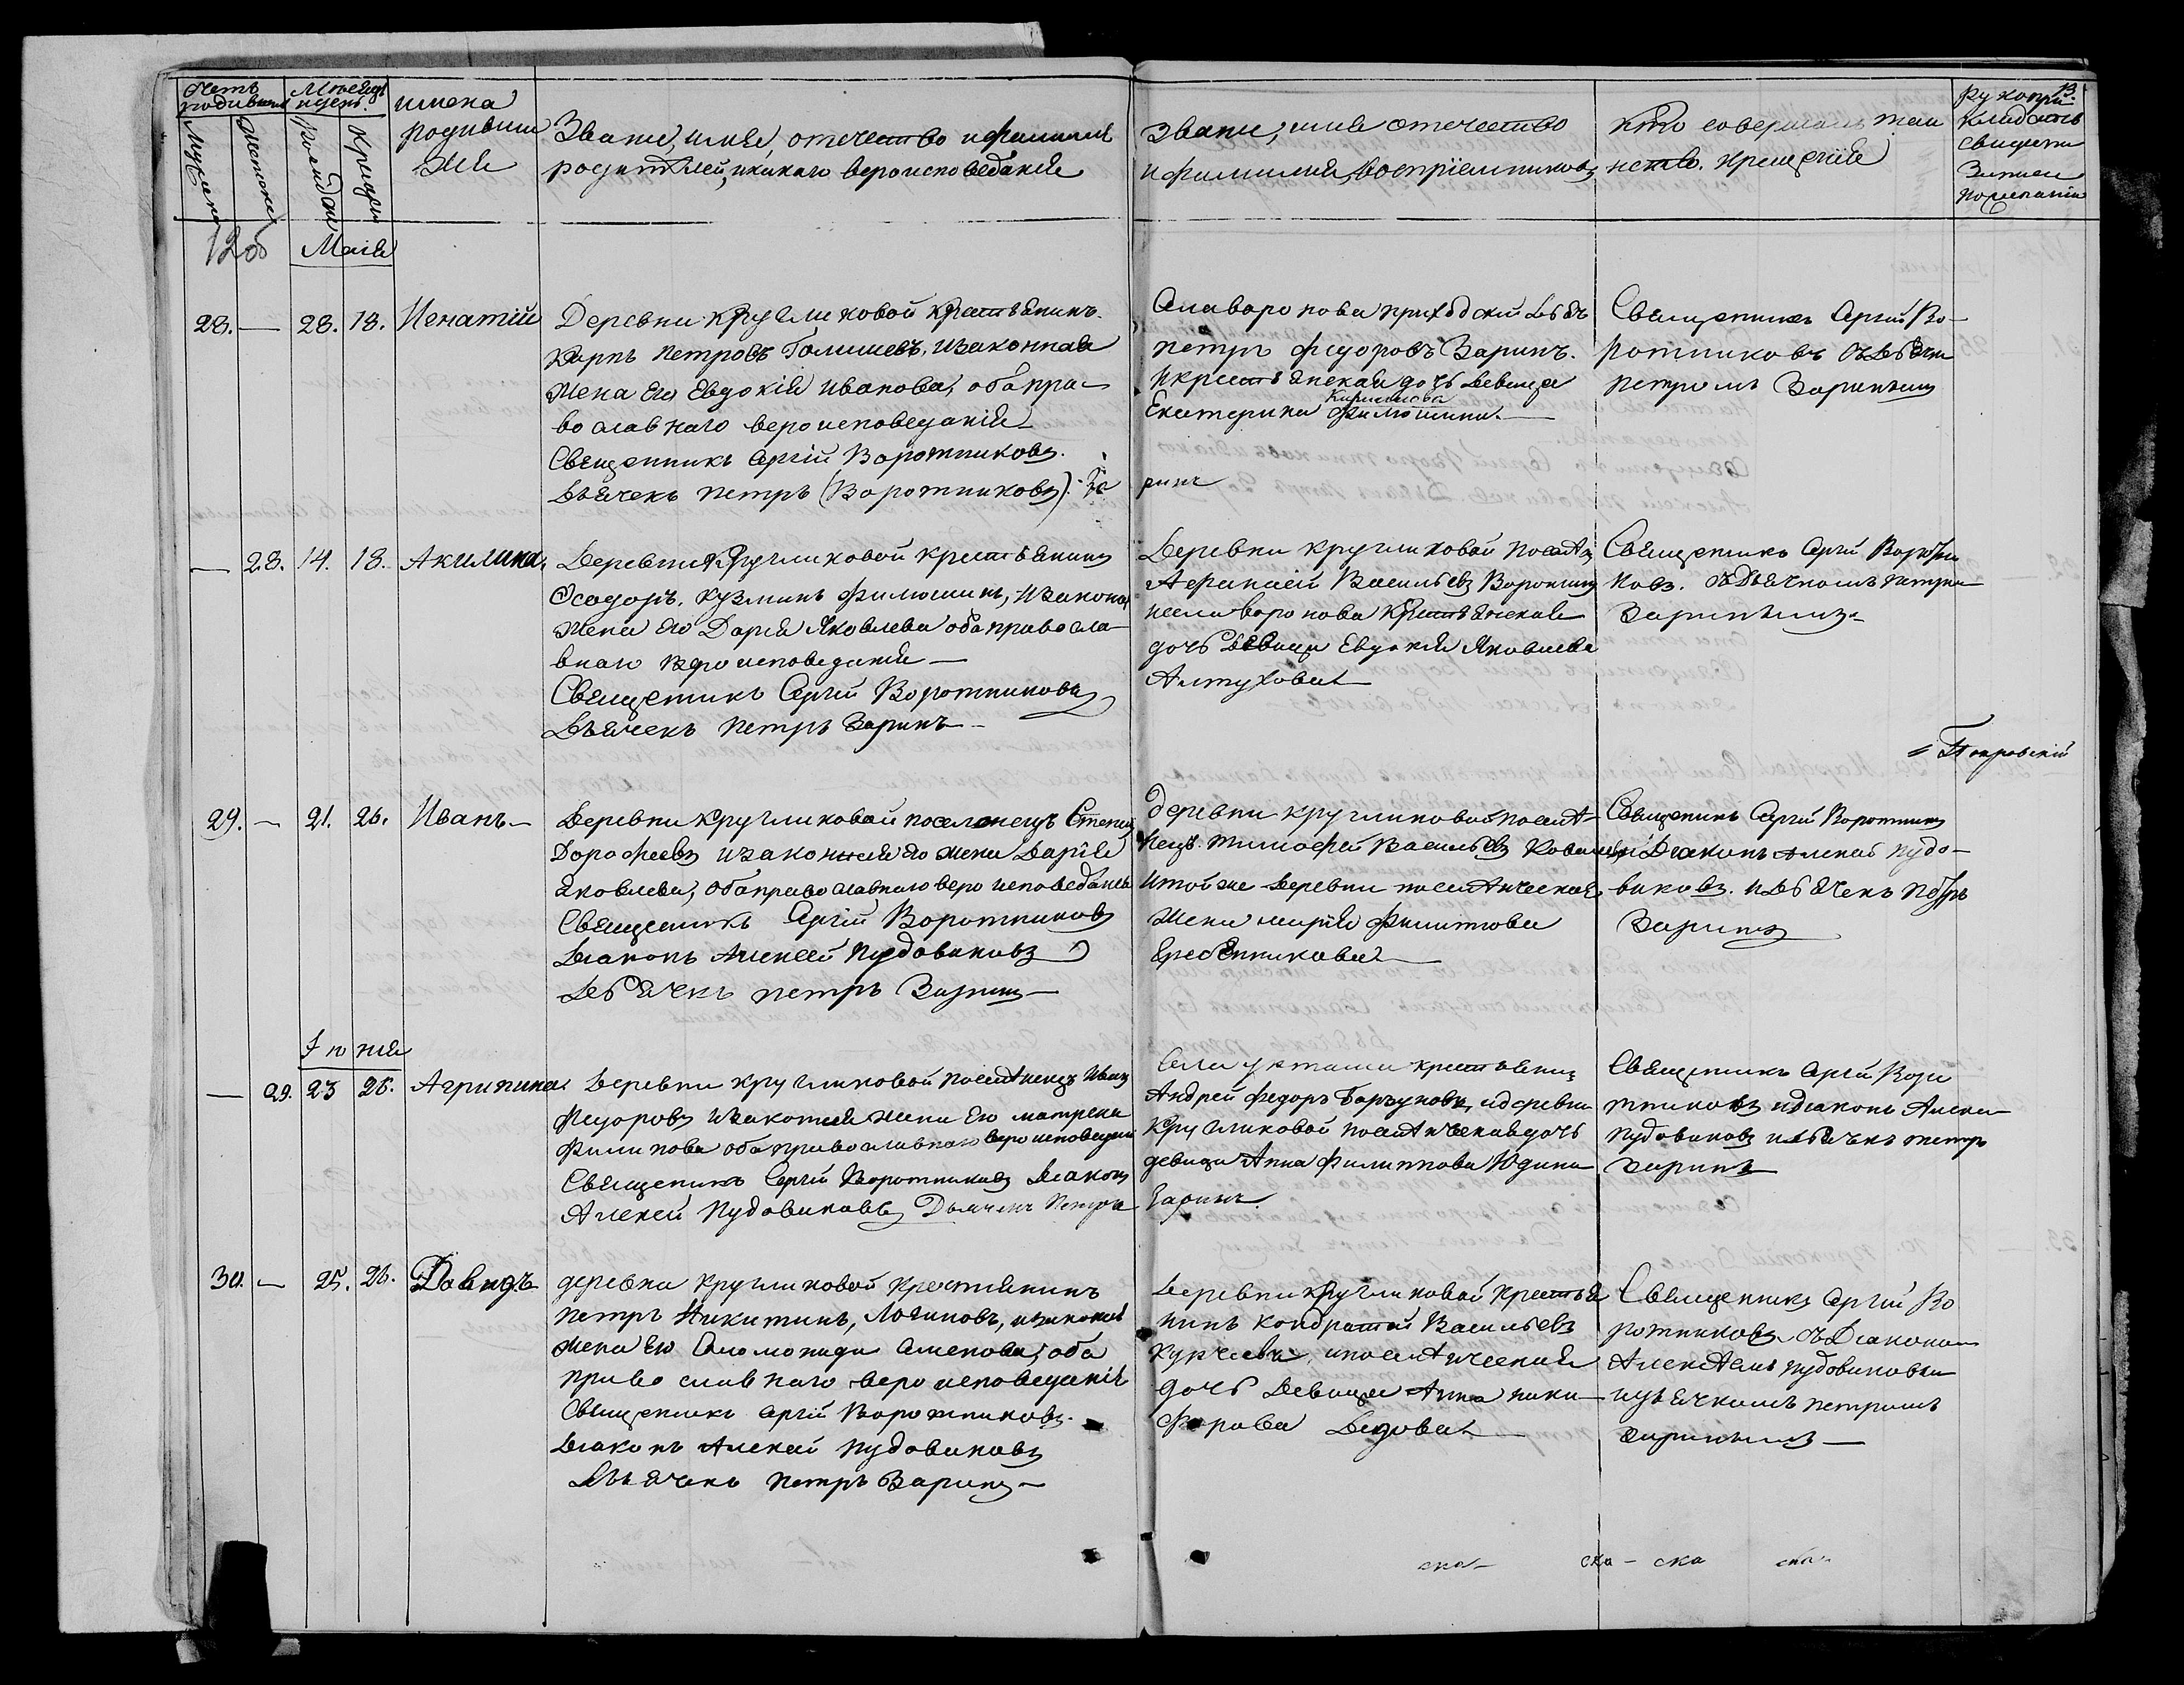 Счетъ родившихся
Мужеска
Женска
Месяцъ и день.
Рожденія
Крещенія
имена
родивши
хся
Званіе, имя, отечество и фамилія
родителей, и какаго вероисповеданія
Званіе, имя отечество
и фамилія, воспріемниковъ
кто совершалъ таи
нство. Крещенія
Рукопри-
кладство
свидетел
записи
по желанію
12 об
Маія
28. — 28. 18. Игнатій
Деревни Кругликовой крестьянинъ.
Карпъ Петровъ Голишевъ, изаконная
жена его Евдокія Иванова, оба пра-
вославнаго вероисповеданія
Священникъ Сергій Воротниковъ.
Дьячекъ Петръ (Воротниковъ). За
ринъ
Села воронова приходский дьячь
петръ федоровъ Заринъ.
и крестьянская дочь девица
Екатерина Кирилова Филюшина. —
Священникъ Сергий Во-
ротниковъ съ дьячком
петромъ Заринымъ
— 28. 14. 18. Акилина.
Деревни Кругликовой крестьянинъ
Феодоръ. Кузминъ Филюшинъ, изаконая
жена его Дарья Яковлева оба правосла-
внаго вероисповеданія —
Священикъ Сергій Воротниковъ
Дьячекъ Петръ Заринъ —
Деревни кругликовой поселя
Афанасій Васильевъ Воронинъ
и села воронова крестьянская
дочь девица Евдокія Яковлева
Алтухова —
Священикъ Сергій Воротни
ковъ. съ Дьячкомъ петром
Зариным —
Покровскій
29. — 21. 26. Иванъ —
Деревни Кругликовой поселенецъ Степанъ
Дорофеевъ изаконная его жена Дарія
Яковлева, оба православнаго вероисповеданія
Священикъ Сергій Воротниковъ
Діаконъ Алексей Пудовиковъ
Дьячекъ петръ Заринъ —
деревни кругликовой поселя-
нецъ. Тимофей Васильевъ
итой же деревни поселянческая
жена марія Филипова
Гребенникова —
Священикъ Сергій Воротник
Діаконъ Алексей Пудо-
виковъ. и дьячекъ Петръ
Заринъ
Іюнія
— 29. 23 25. Агрипина
Деревни кругликовой поселянецъ Иванъ
Федоровъ изаконная жена его матрена
Филипова оба православнаго вероисповедания
Священикъ Сергій Воротниковъ Діаконъ
Алексей Пудовиковъ Дьячекъ Петръ
Заринъ.
Села уртамы крестьянинъ
Андрей федоръ, и деревни
Кругликовой поселянческая дочь
девица Анна Филиппова Юдина
Священикъ Сергій Воро
тниковъ идіаконъ Алексей
пудовиковъ и дьячекъ петръ
заринъ
30. — 25. 26. Давидъ
деревни Кругликовой Крестьянинъ
петръ Никитинъ, Логиновъ, изаконая
жена его Соломонида Семенова, оба
православнаго вероисповеданія
Священикъ Сергій Воротниковъ.
Діаконъ Алексей Пудовиковъ
Дьячекъ Петръ Заринъ —
Деревни Кругликовой крестья
нинъ Кондратій Васильевъ
и поселянческая
дочь девица Анна ники-
форова Дедова —
Священникъ Сергій Во
ротниковъ съ Діакономъ
Алексеемъ пудовиковым
идьячкомъ петромъ
заринымъ —
ска — ска — ска ска —